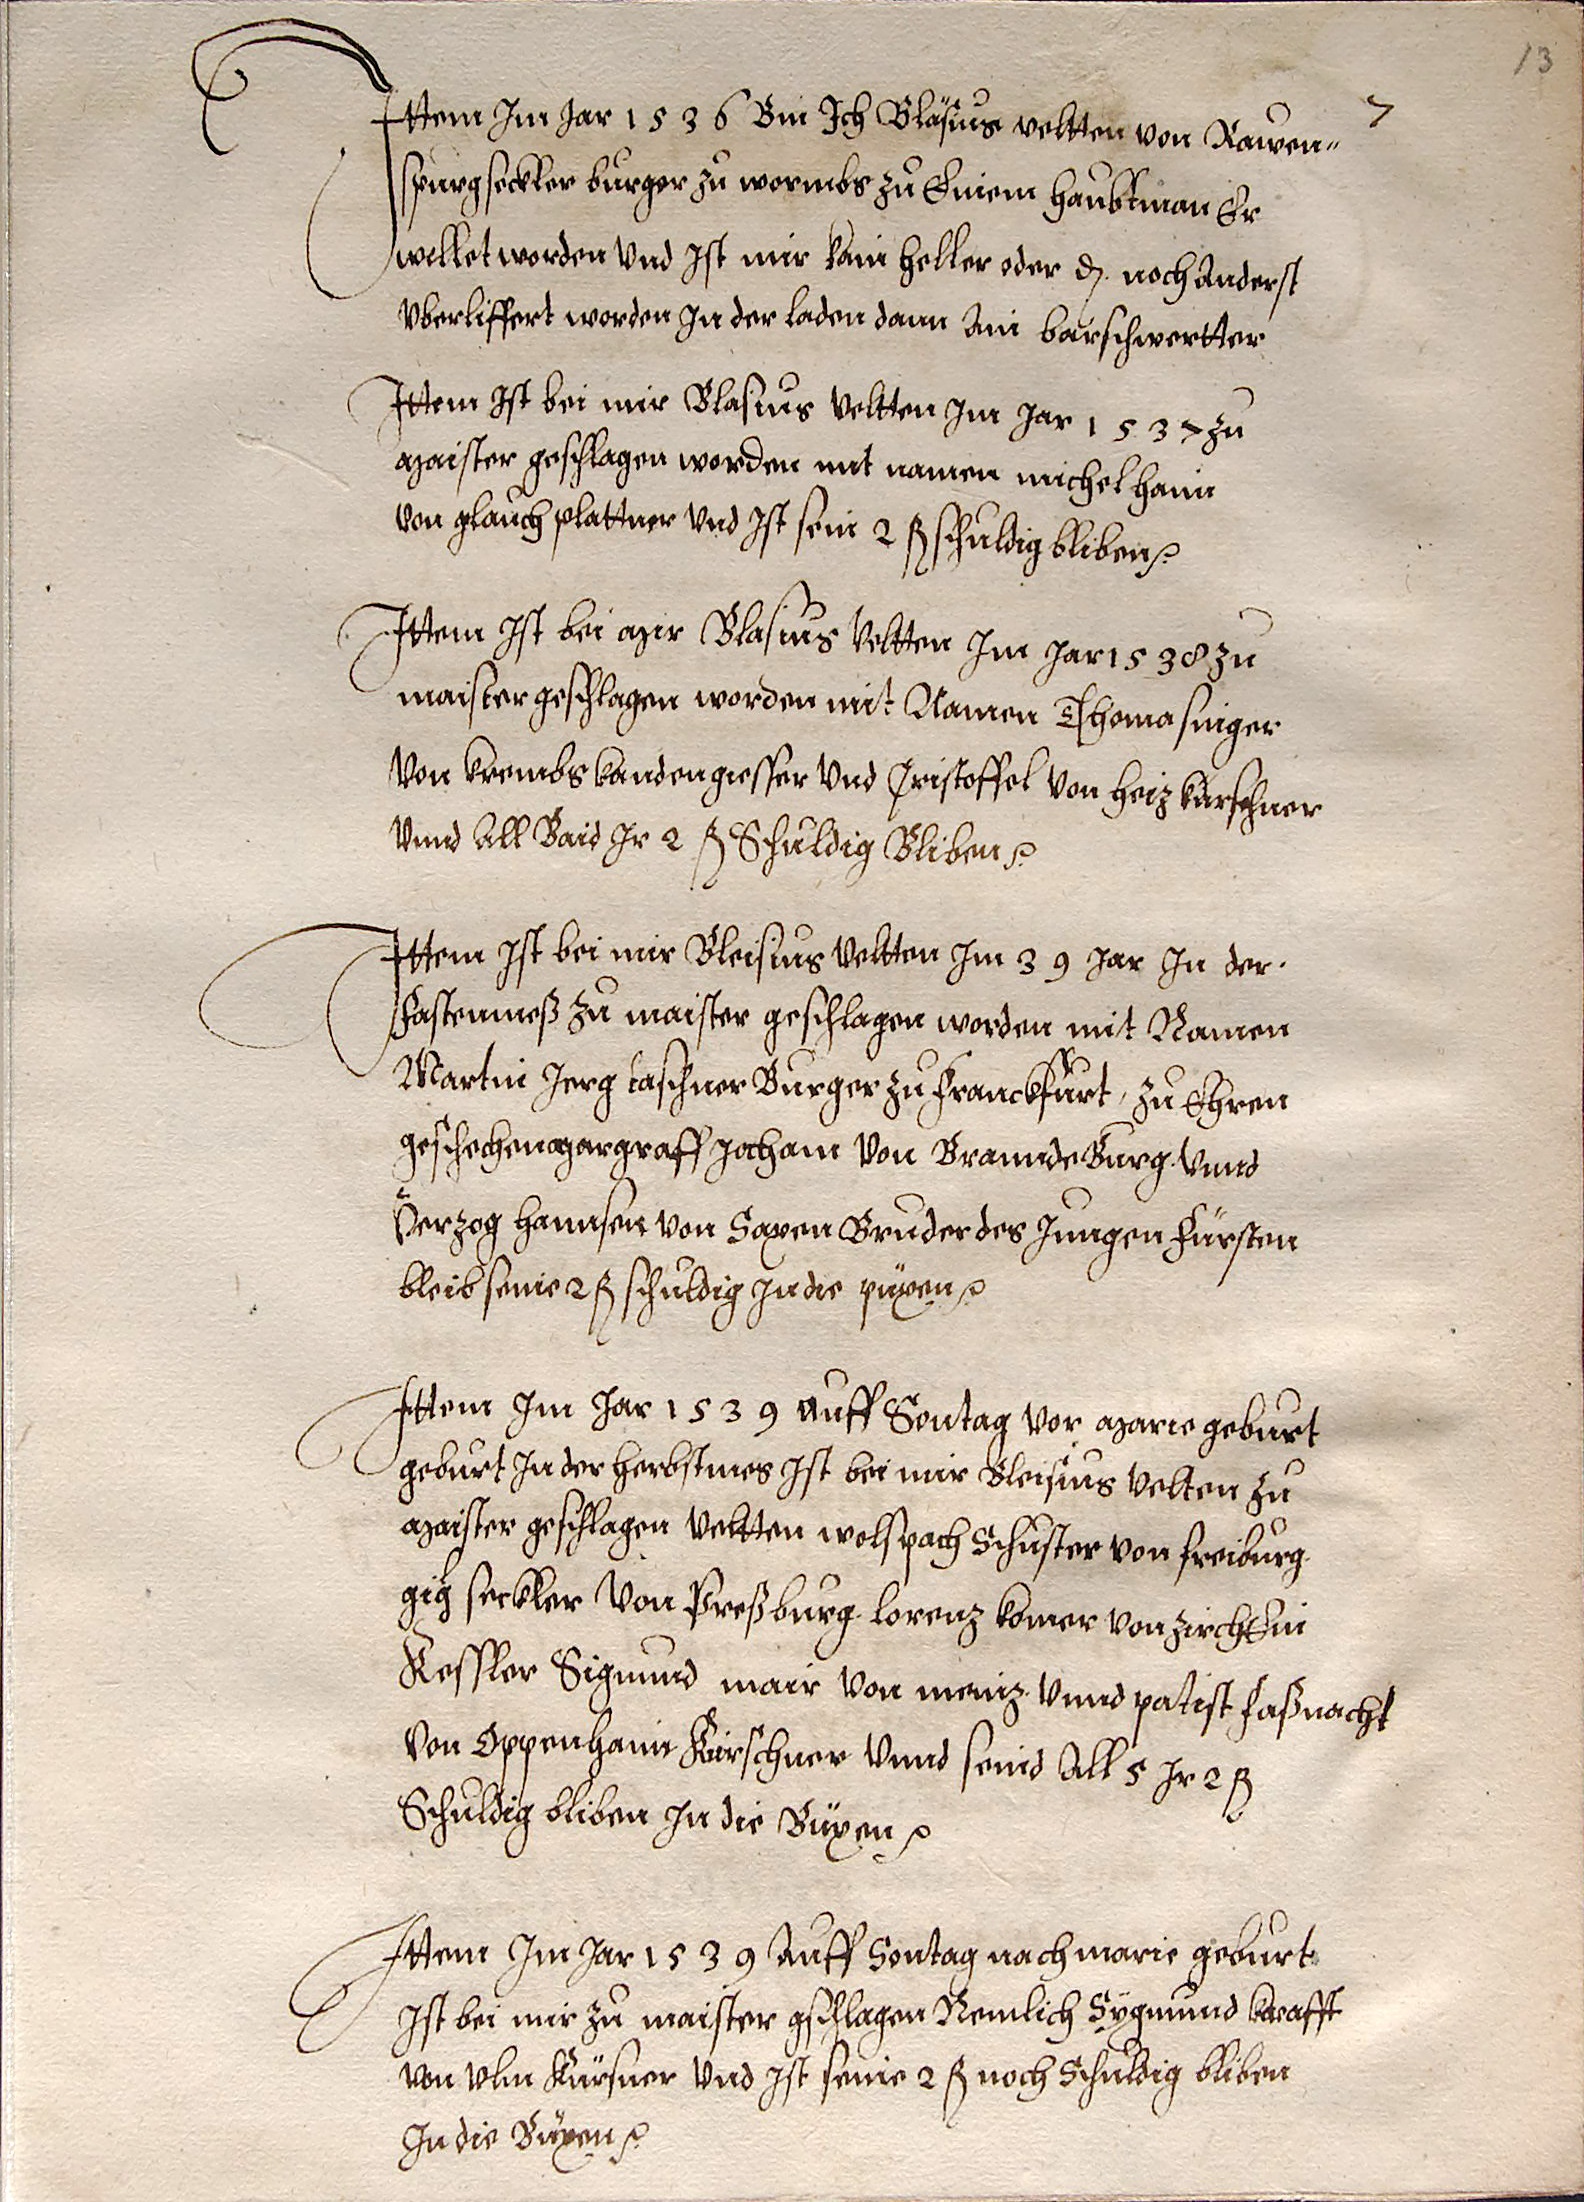 13
7
Ittem Im Jar 1536 Bin Ich Bläsius veltten von Rawen-
spurg seckler burger zu wormbs zu Einem haubtman Er
wellet worden Vnd Ist mir kain heller oder ₰. noch Anderst
Vberliffert worden In der laden dann Ain barschwertter
Ittem Ist bei mir Blasius Veltten Im Jar 1537 zu
Maister geschlagen worden mit namen michel hain
von glauch plattner Vnd Ist sein 2 ß schuldig bliben
Ittem Ist bei Mir Blasius Veltten Im Jar 1538 zu
maister geschlagen worden mit Namen Thoma sniger
Von krembs kandengiesser Vnd Cristoffel Von heiz kürschner
Vnnd All Baid Ir 2 ß Schuldig Bliben
Ittem Ist bei mir Bleisius Veltten Im 39 Jar In der
Fastenmeß zu maister geschlagen worden mit Namen
Martin Jerg taschner Burger zu Franckfurt, zu Ehren
geschechen Margraff Jocham Von Brannde Burg. Vnnd
Herzog hannsen Von Saxen Bruder des Jungen Fürsten
bleib seine 2 ß schuldig In die püxen
Ittem Im Jar 1539 Auff Sontag Vor Marie geburt
geburt In der herbstmes Ist bei mir Bleisius Velten zu
Maister geschlagen Veltten wolspach Schuster von freiburg.
gilg seckler Von Preßburg. lorenz komer von zirch Ein
Kessler Sigmund mair Von meinz. Vnnd patist faßnacht
Von Oppenhaim Kürschner Vnnd seind All 5 Ir 2 ß
Schuldig bliben In die Büxen
Ittem Im Jar 1539 Auff Sontag nach marie geburt
Ist bei mir zu maister gschlagen Nemlich Sÿgmund krafft
von Vlm Kürsner Vnd Ist seine 2 ß noch Schuldig bliben
In die Büxen